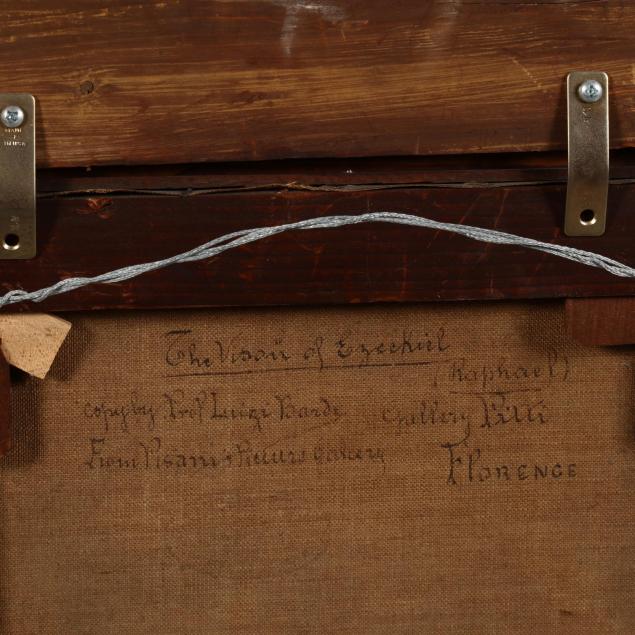 The Vision of Ezechiel
(Raphael)
copy by Prof Luigi Bardi Gallery Pitti
From Pisani's Picture Gallery
FLORENCE